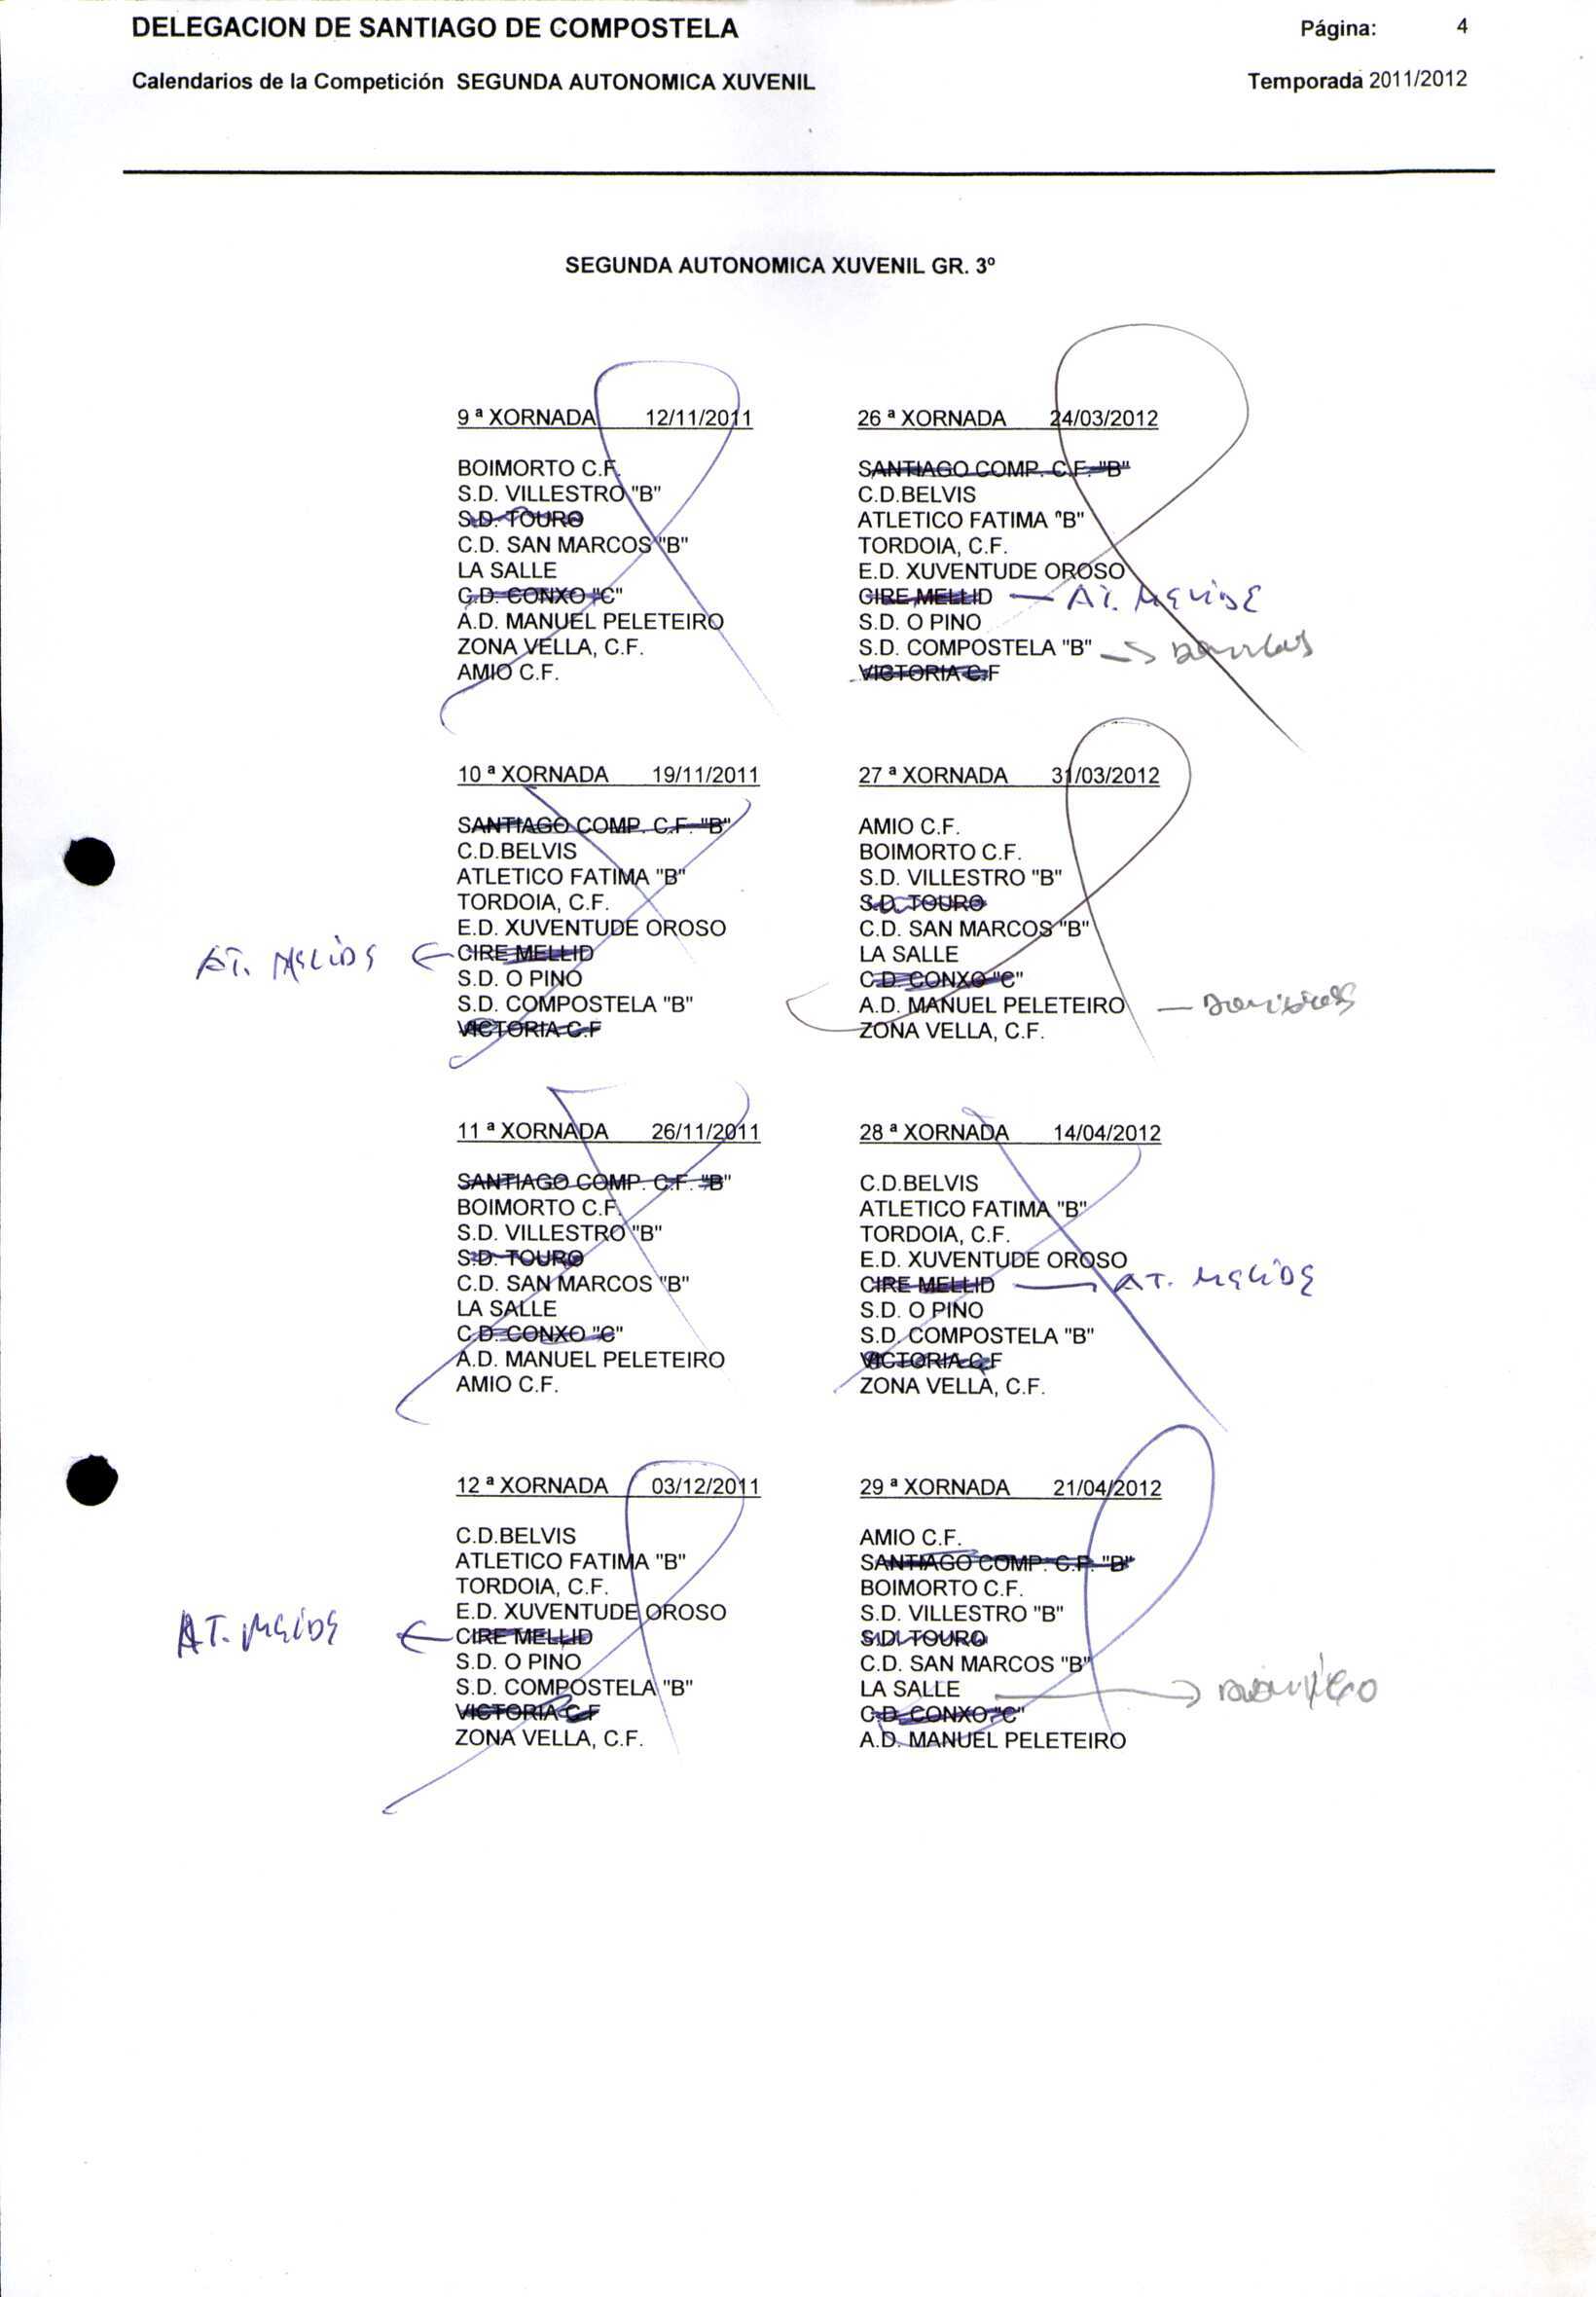 DELEGACION DE SANTIAGO DE COMPOSTELA
Página: 4
Calendarios de la Competición SEGUNDA AUTONOMICA XUVENIL
Temporada 2011/2012
SEGUNDA AUTONOMICA XUVENIL GR. 3º
9 ª XORNADA 12/11/2011
BOIMORTO C.F.
S.D. VILLESTRO "B"
S.D. TOURO
C.D. SAN MARCOS "B"
LA SALLE
C.D. CONXO "C"
A.D. MANUEL PELETEIRO
ZONA VELLA, C.F.
AMIO C.F.
26 ª XORNADA 24/03/2012
SANTIAGO COMP. C.F. "B"
C.D.BELVIS
ATLETICO FATIMA "B"
TORDOIA, C.F.
E.D. XUVENTUDE OROSO
CIRE MELLID — AT. MELIDE
S.D. O PINO
S.D. COMPOSTELA "B"
VICTORIA C.F
10 ª XORNADA 19/11/2011
SANTIAGO COMP. C.F. "B"
C.D.BELVIS
ATLETICO FATIMA "B"
TORDOIA, C.F.
E.D. XUVENTUDE OROSO
AT. MELIDE ← CIRE MELLID
S.D. O PINO
S.D. COMPOSTELA "B"
VICTORIA C.F
27 ª XORNADA 31/03/2012
AMIO C.F.
BOIMORTO C.F.
S.D. VILLESTRO "B"
S.D. TOURO
C.D. SAN MARCOS "B"
LA SALLE
C.D. CONXO "C"
A.D. MANUEL PELETEIRO
ZONA VELLA, C.F.
11 ª XORNADA 26/11/2011
SANTIAGO COMP. C.F. "B"
BOIMORTO C.F.
S.D. VILLESTRO "B"
S.D. TOURO
C.D. SAN MARCOS "B"
LA SALLE
C.D. CONXO "C"
A.D. MANUEL PELETEIRO
AMIO C.F.
28 ª XORNADA 14/04/2012
C.D.BELVIS
ATLETICO FATIMA "B"
TORDOIA, C.F.
E.D. XUVENTUDE OROSO
CIRE MELLID — AT. MELIDE
S.D. O PINO
S.D. COMPOSTELA "B"
VICTORIA C.F
ZONA VELLA, C.F.
12 ª XORNADA 03/12/2011
C.D.BELVIS
ATLETICO FATIMA "B"
TORDOIA, C.F.
E.D. XUVENTUDE OROSO
AT. MELIDE ← CIRE MELLID
S.D. O PINO
S.D. COMPOSTELA "B"
VICTORIA C.F
ZONA VELLA, C.F.
29 ª XORNADA 21/04/2012
AMIO C.F.
SANTIAGO COMP. C.F. "B"
BOIMORTO C.F.
S.D. VILLESTRO "B"
S.D. TOURO
C.D. SAN MARCOS "B"
LA SALLE
C.D. CONXO "C"
A.D. MANUEL PELETEIRO